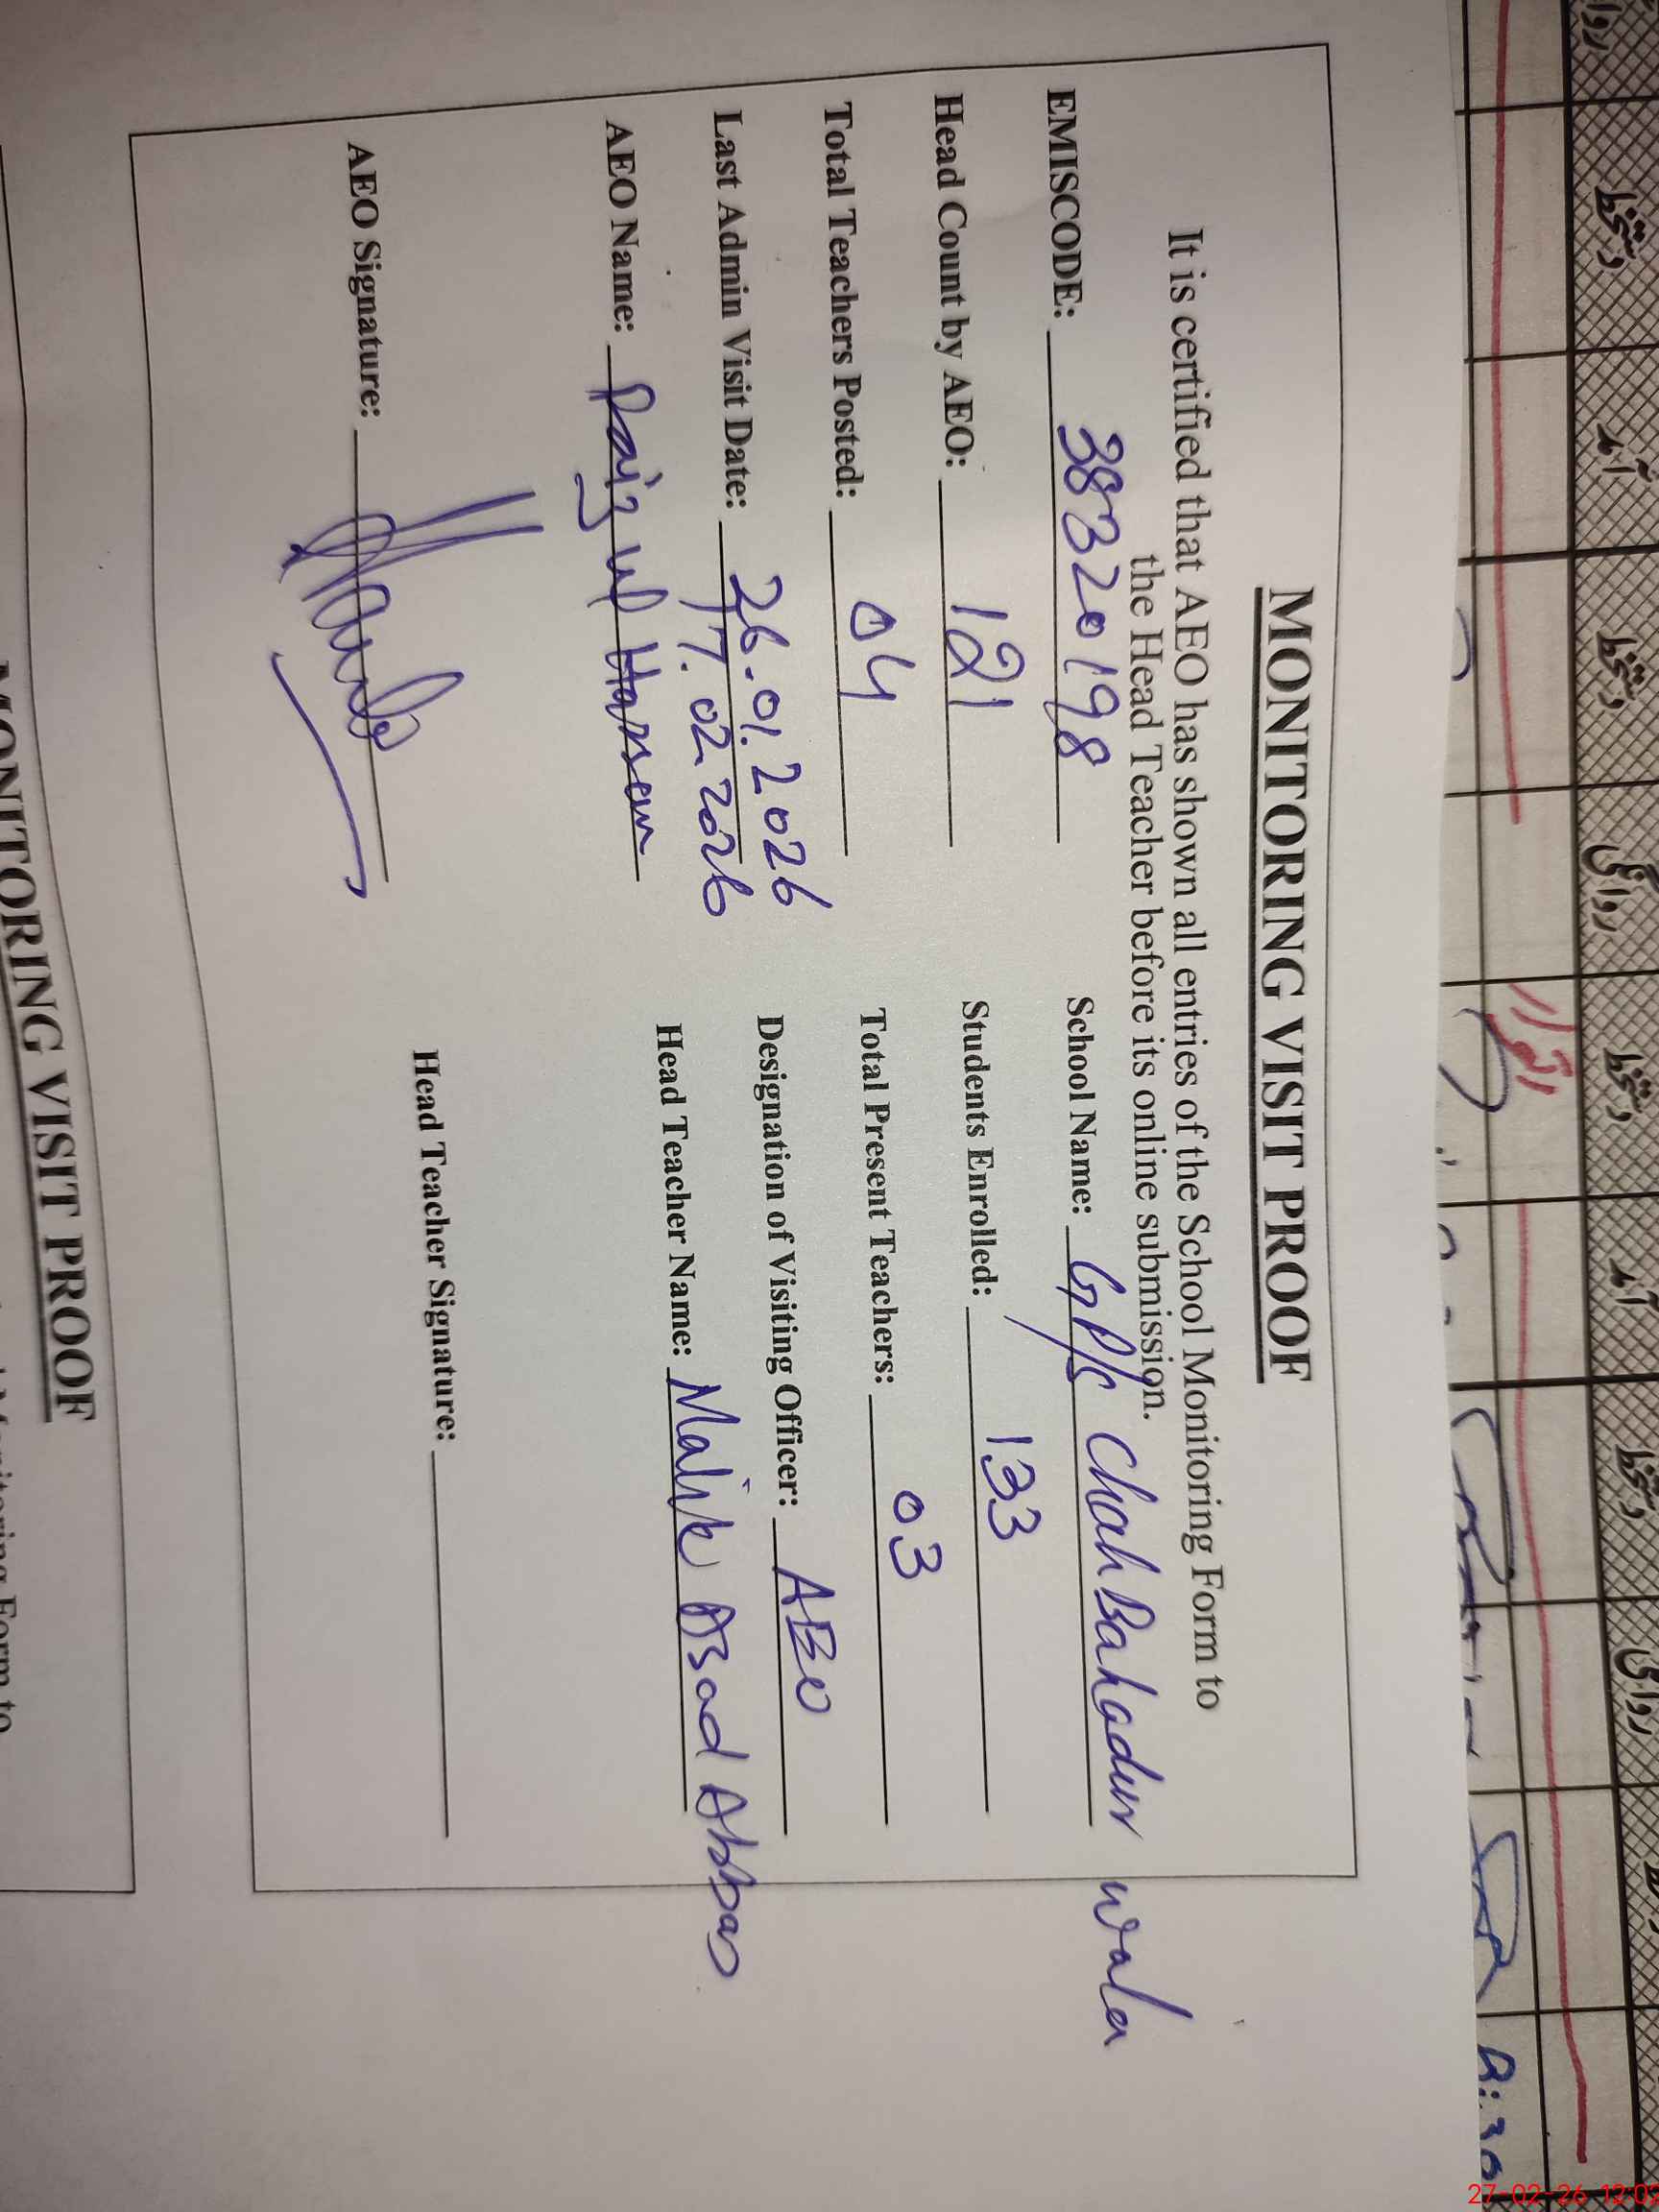 روا
دستخط
آمد
دستخط
روانگی
دستخط
آمد
دستخط
اتوار
MONITORING VISIT PROOF
It is certified that AEO has shown all entries of the School Monitoring Form to
the Head Teacher before its online submission.
EMISCODE: 38320198 School Name: GP/S Chah Bahadur wala
Head Count by AEO: 121 Students Enrolled: 133
Total Teachers Posted: 04 Total Present Teachers: 03
Last Admin Visit Date: 26.01.2026 Designation of Visiting Officer: AEO
17.02.2026
AEO Name: ul Hassan Head Teacher Name: Malik Asad Abbas
AEO Signature: Head Teacher Signature:
MONITORING VISIT PROOF
Monitoring Form to
27-02-26 12:02